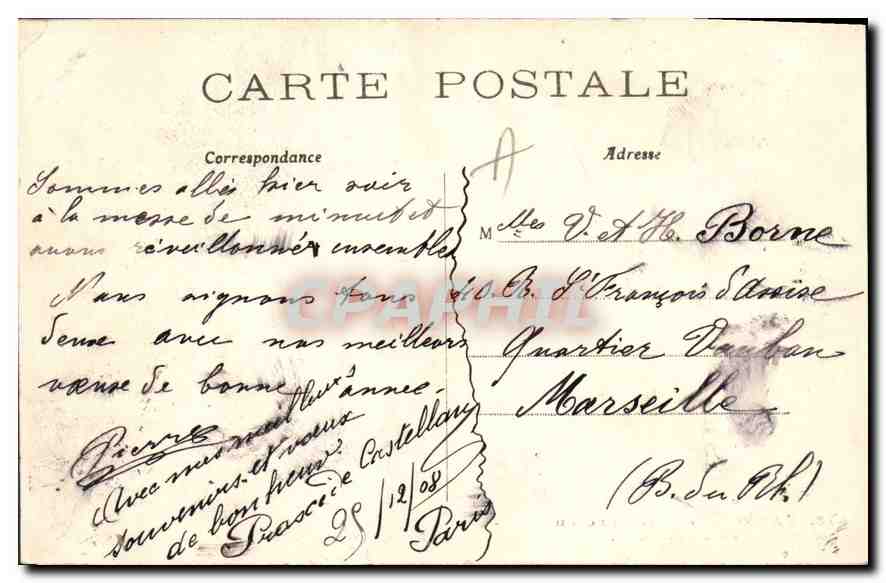 CARTE POSTALE
Correspondance
Adresse
A
Sommes allés hier soir
à la messe de minuit et
avons réveillonnés ensembles
Nous signons tous
deux avec nos meilleurs
vœux de bonne année.
Pierre
Avec mes meilleurs
souvenirs et vœux
de bonheur.
Castellan
25/12/08
Paris
Melles V. et H. Borne
40. B. St François d'Assise
Quartier Vauban
Marseille
(B. du Rh.)
CPAPHIL